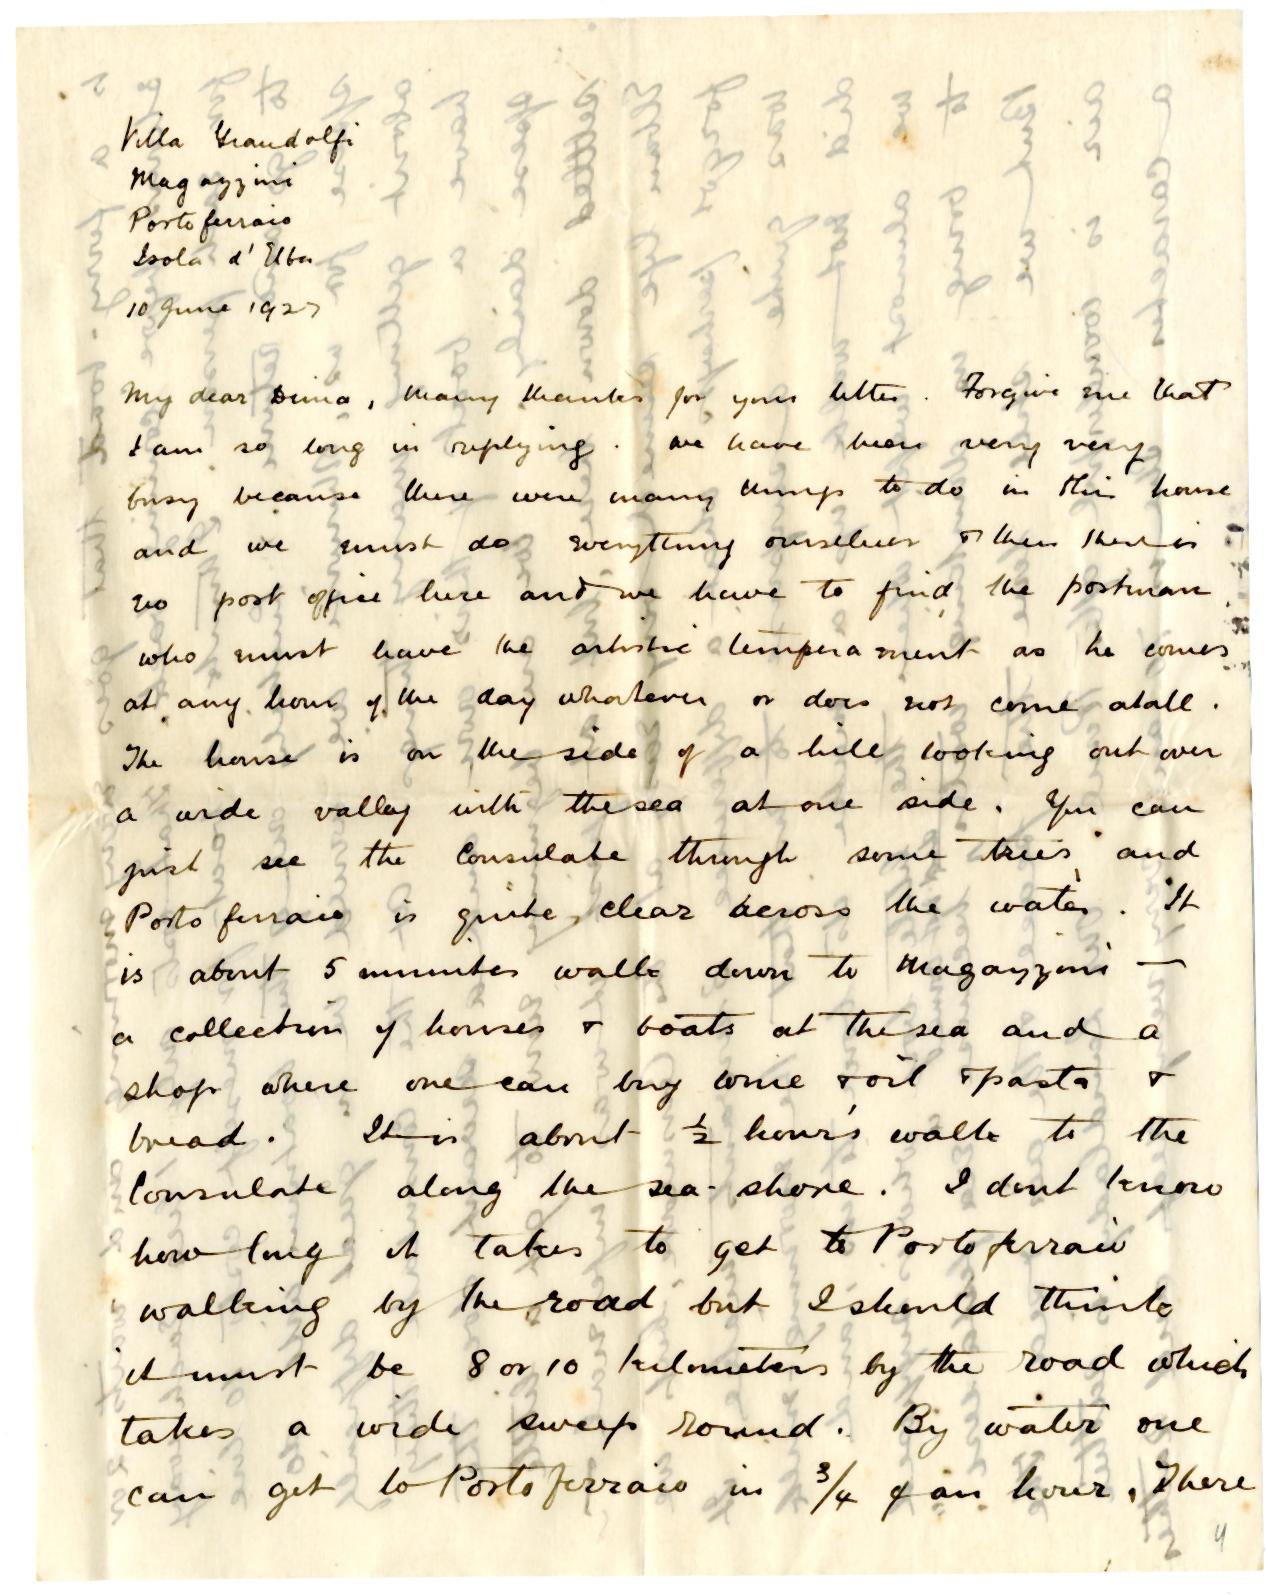 Villa Grandolfi
Magazzini
Portoferraio
Isola d'Elba
10 June 1927
My dear Dima, many thanks for your letter. Forgive me that
I am so long in replying. We have been very very
busy because there were many things to do in this house
and we must do everything ourselves & then there is
no post office here and we have to find the postman
who must have the artistic temperament as he comes
at any hour of the day whatever or does not come atall.
The house is on the side of a hill looking out over
a wide valley with the sea at one side. You can
just see the Consulate through some trees and
Portoferraio is quite clear across the water. It
is about 5 minutes walk down to Magazzini —
a collection of houses & boats at the sea and a
shop where one can buy wine & oil & pasta &
bread. It is about ½ hour's walk to the
Consulate along the sea-shore. I dont know
how long it takes to get to Portoferraio
walking by the road but I should think
it must be 8 or 10 kilometers by the road which
takes a wide sweep round. By water one
can get to Portoferraio in 3/4 of an hour. There
4